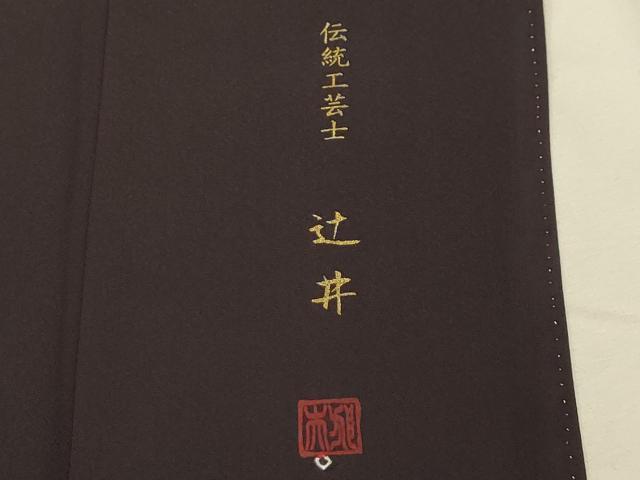 伝統工芸士
辻井